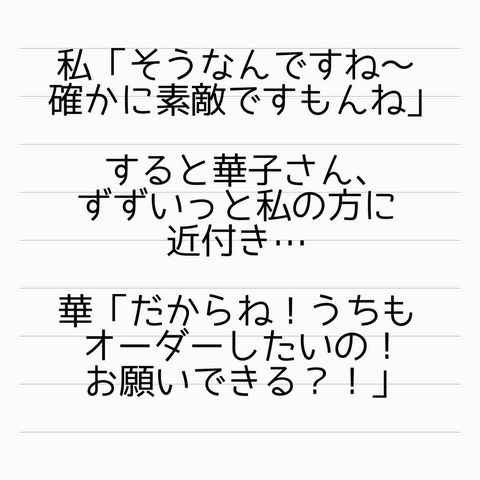 私「そうなんですね～
確かに素敵ですもんね」
すると華子さん、
ずずいっと私の方に
近付き…
華「だからね！うちも
オーダーしたいの！
お願いできる？！」